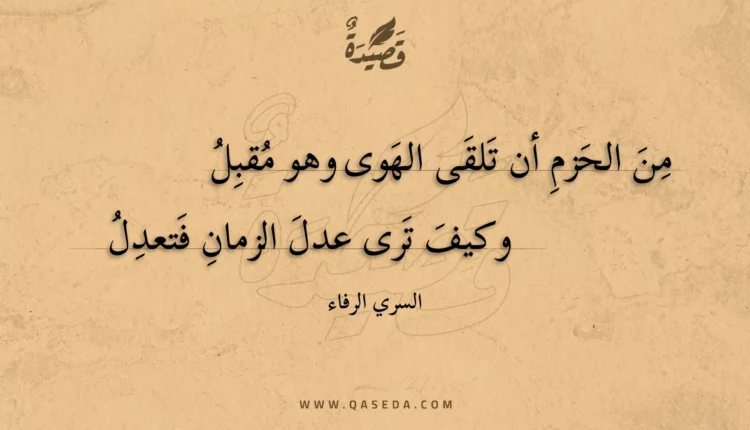 قَصِيدَةٌ
مِنَ الحَزمِ أن تَلقَى الهَوى وهو مُقبِلُ
وكيفَ تَرى عدلَ الزمانِ فَتعدِلُ
السري الرفاء
WWW.QASEDA.COM